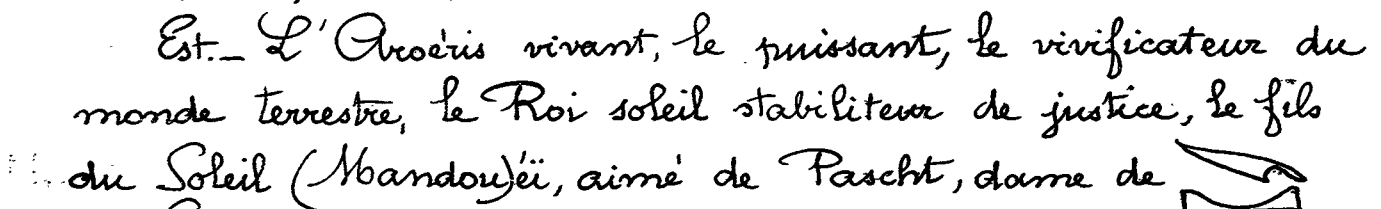 Est._ L'Aroéris vivant, le puissant, le vivificateur du
monde terrestre, le Roi soleil stabiliteur de justice, le fils
du Soleil (Mandou)éï, aimé de Pascht, dame de